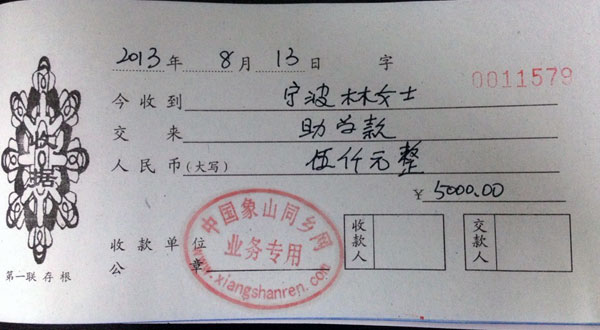 2013年 8月 13日 字
0011579
今收到 宁波林女士
交来 助学款
人民币(大写) 伍仟元整
¥ 5000.00
收款单位
公章
中国象山同乡网
业务专用
www.xiangshanren.com
收款人
交款人
收据
第一联存根